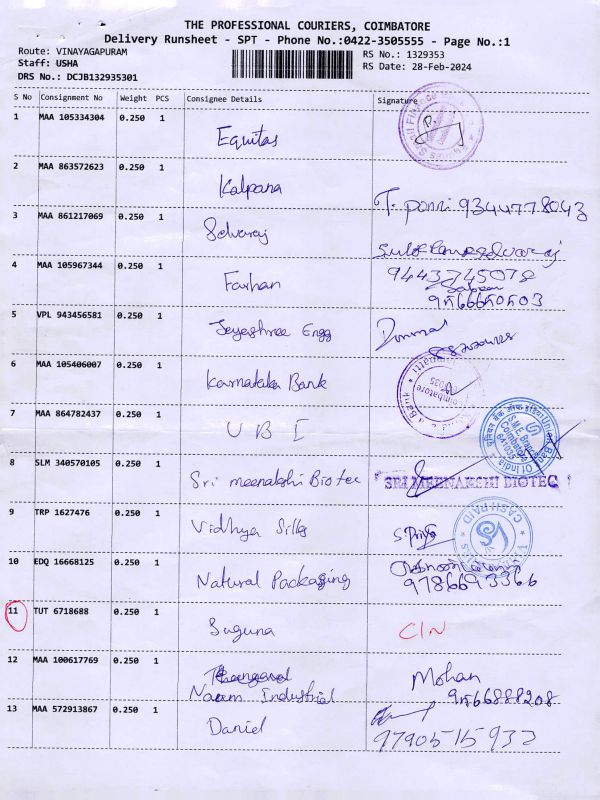 THE PROFESSIONAL COURIERS, COIMBATORE
Delivery Runsheet - SPT - Phone No.:0422-3505555 - Page No.:1
Route: VINAYAGAPURAM
RS No.: 1329353
Staff: USHA
RS Date: 28-Feb-2024
DRS No.: DCJB132935301
S No Consignment No Weight PCS Consignee Details Signature
1 MAA 105334304 0.250 1 Equitas
2 MAA 863572623 0.250 1 Kalpana T. ponni 9344778043
3 MAA 861217069 0.250 1 Selvaraj
4 MAA 105967344 0.250 1 Farhan 9443745078
9566650503
5 VPL 943456581 0.250 1 Jeyashree Engg
6 MAA 105406007 0.250 1 Karnataka Bank Coimbatore
7 MAA 864782437 0.250 1 UBI
S.M.E. Branch Coimbatore 641035
8 SLM 340570105 0.250 1 Sri meenakshi Biotec SRI MEENAKSHI BIOTEC
9 TRP 1627476 0.250 1 Vidhya Silks S. Priya CASH PAID
10 EDQ 16668125 0.250 1 Natural Packaging 9786693366
11 TUT 6718688 0.250 1 Suguna CIN
12 MAA 100617769 0.250 1 Naam Industrial Mohan 9566888208
13 MAA 572913867 0.250 1 Daniel 9790515932